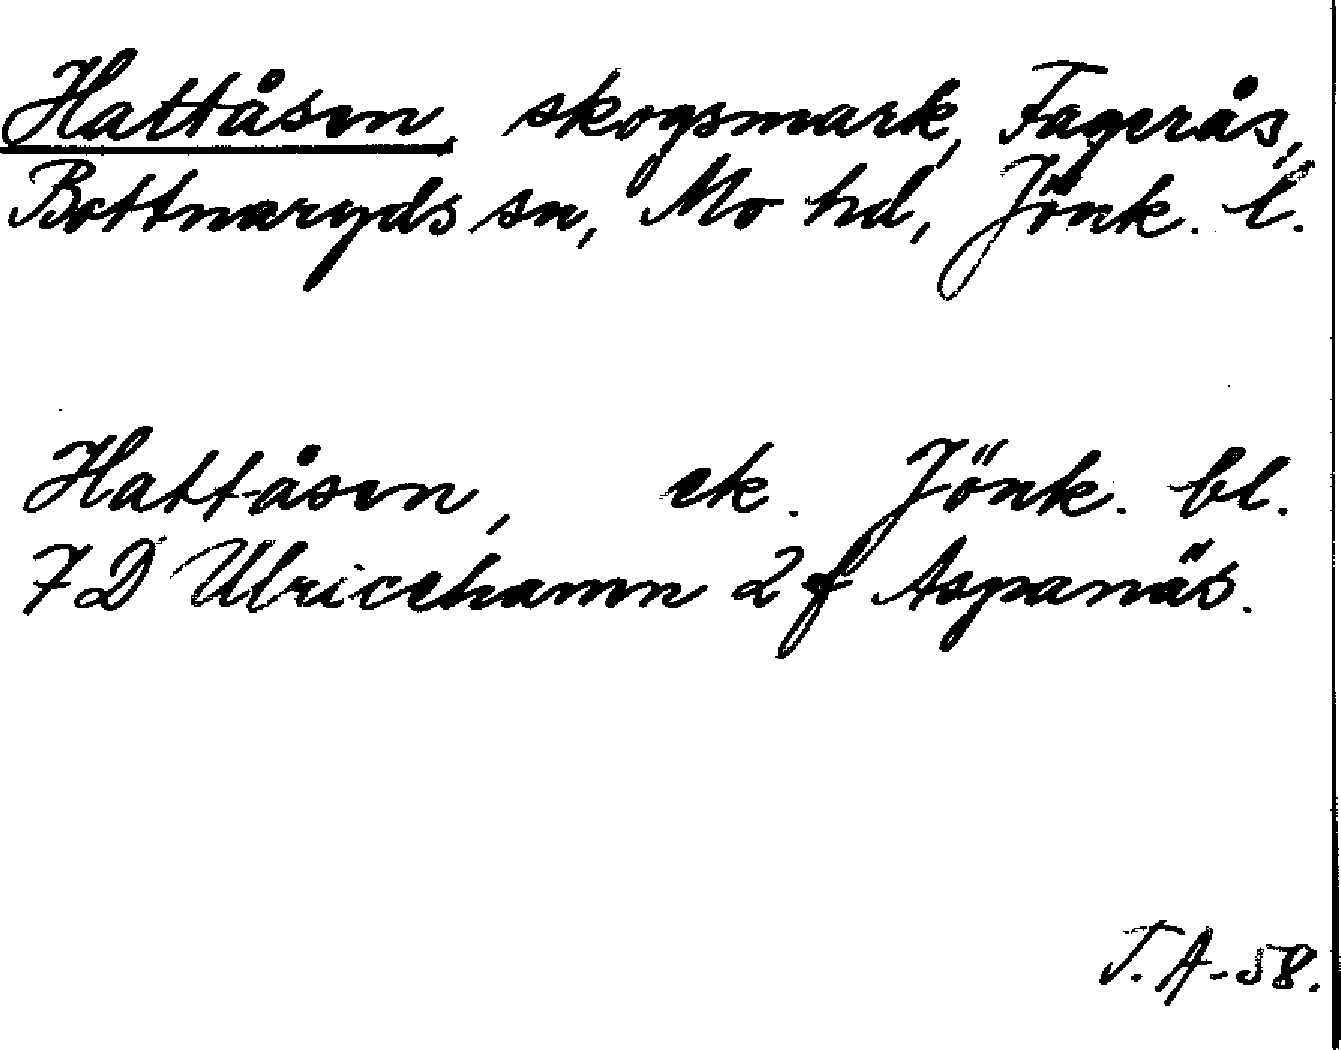 Hattåsen, skogsmark, Fagerås,
Bottnaryds sn, Mo hd, Jönk. l.
Hattåsen, ek. Jönk. bl.
7D Ulricehamn 2f Aspanäs.
T.A-58.